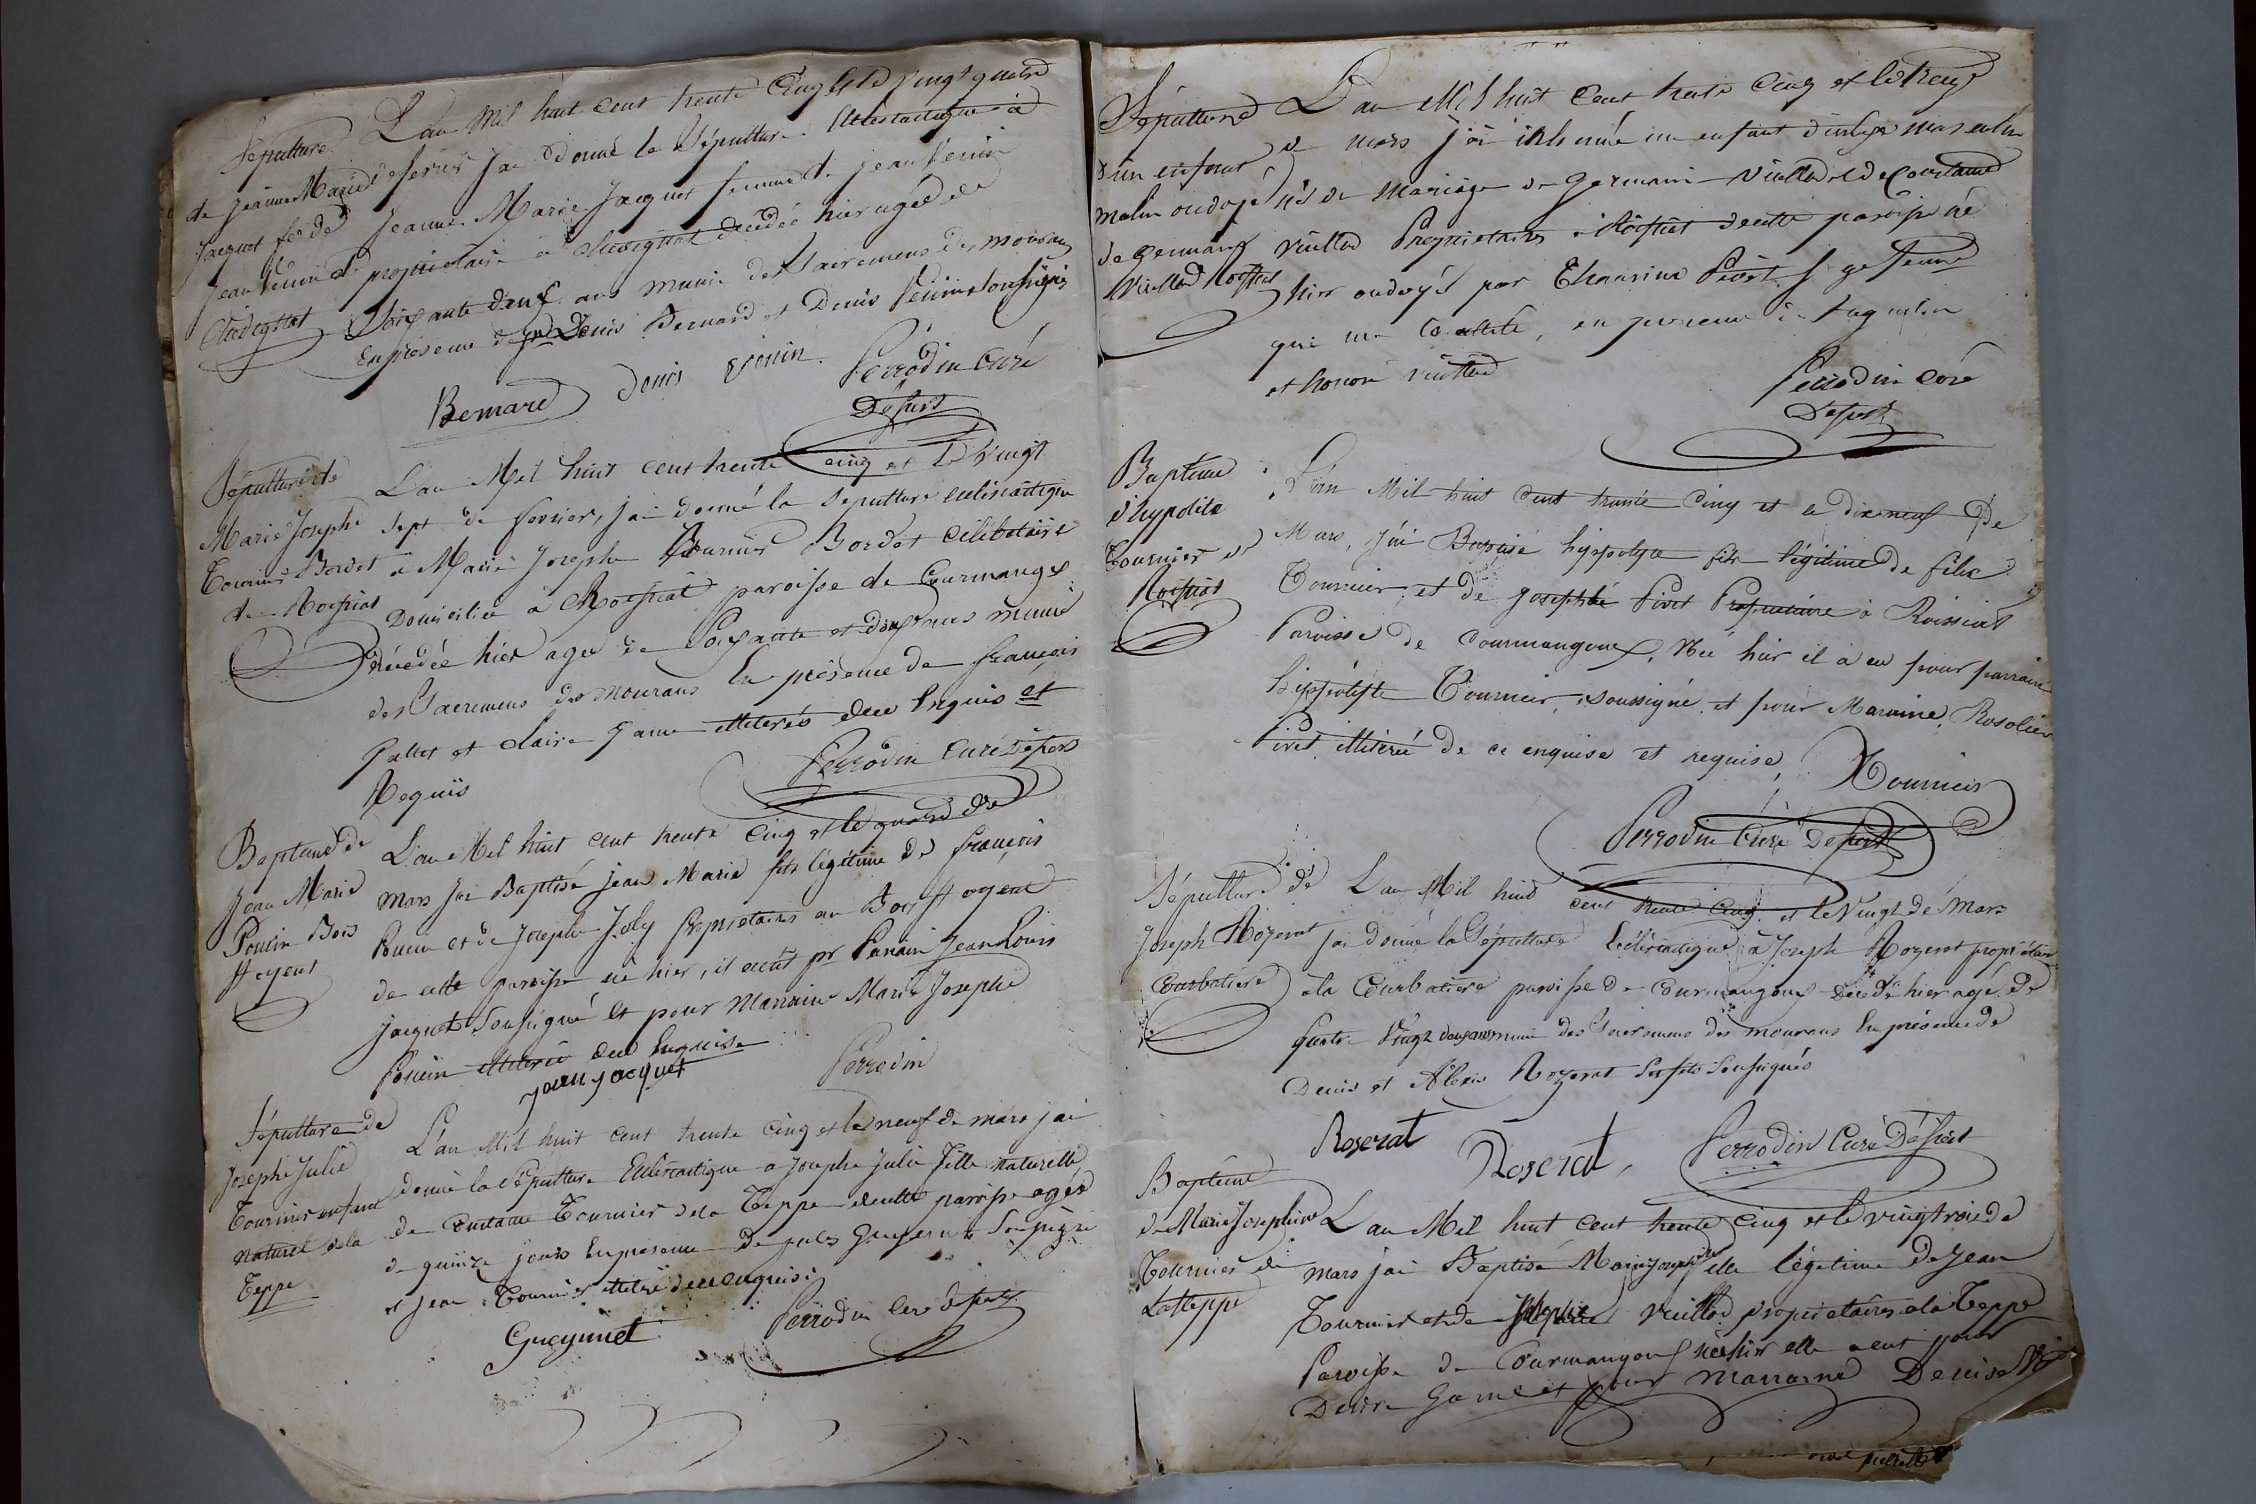 Sépulture
de jeanne Marie
jacquet fe de
jean
Chavagnat
L'an Mil huit cent trente Cinq et le vingt quatre
de fevrier j'ai donné la Sépulture Ecclésiastique à
Jeanne Marie Jacquet femme de jean
propriétaire à décédée hier agée de
Soixante deux ans munie des Sacremens des mourans
En présence de Denis Bernard et Denis soussignés
Bernard Denis Perrodin Curé
Defert
Sépulture de
Marie Josephe
Tournier Bordet
de Roissiat
L'an Mil huit cent trente cinq et le vingt
sept de fevrier, j'ai donné la sépulture ecclésiastique
à Marie Josephe Tournier Bordet célibataire
Domiciliée à Roissiat paroisse de Courmangoux
décédée hier agée de Soixante et dix ans munie
des Sacremens des mourans En présence de françois
Pallet et Claire Jame illiterés de ce Enquis et
Requis
Perrodin Curé Defert
Baptême de
Jean Marie
Poncin Bois
ffoyent
L'an Mil huit cent trente Cinq et le quatre de
mars j'ai Baptisé jean Marie fils légitime de françois
Poncin et de Josephe Joly Propriétaires au Bois ffoyent
de cette paroisse né hier, il a eut pr Parain Jean Louis
jacquet Soussigné et pour Marraine Marie Josephe
Poncin illiterée de ce Enquise
jean jacquet Perrodin
Sépulture de
Josephe Julie
Tournier enfant
naturel de la
Teppe
L'an Mil huit cent trente Cinq et le neuf de mars j'ai
donné la Sépulture Ecclésiastique à Josephe Julie fille naturelle
de Constance Tournier de la Teppe de cette paroisse agée
de quinze jours En présence de jules Soussigné
et jean Tournier illiteré de ce enquis
Perrodin Curé defert
Sépulture
d'un enfant
malin ondoyé
de Germain
Vuillod Roissiat
L'an Mil huit Cent trente Cinq et le treize
de mars j'ai inhumé un enfant du sexe masculin
né du Mariage de Germain Vuillod et de Constance
Vuillod Propriétaires à Roissiat de cette paroisse né
hier ondoyé par Thaurine Pivet Sage femme
en présence de
et honoré vuillod
Perrodin Curé
Defert
Baptême
d'hypolite
Tournier de
Roissiat
L'an Mil huit cent trente Cinq et le dix neuf De
Mars, j'ai Baptisé hyppolyte fils légitime de félix
Tournier, et de josephte Pivet Propriétaire à Roissiat
Paroisse de Courmangoux, Né hier il a eu pour parrain
hippolyte Tournier, soussigné et pour Maraine Rosalie
Pivet illitérée de ce enquise et requise,
Tournier
Perrodin Curé Defert
Sépulture de
Joseph Rozerat
Courbatiere
L'an Mil huit cent trente Cinq et le Vingt de Mars
j'ai donné la Sépulture Ecclésiastique à Joseph Rozerat propriétaire
à la Courbatiere paroisse de Courmangoux décédé hier agé de
quatre Vingt deux ans muni des Sacremens des mourans En présence de
Denis et Alexis Rozerat Ses fils Soussignés
Roserat Roserat, Perrodin Curé Defert
Baptême
de Marie Josephine
Tournier de
La teppe
L'an Mil huit cent trente Cinq et le vingt trois de
mars j'ai Baptisé Marie josephine fille légitime de Jean
Tournier et de Vuillod propriétaires à la Teppe
Paroisse de Courmangoux née hier elle a eut pour
et pour Marraine Denise